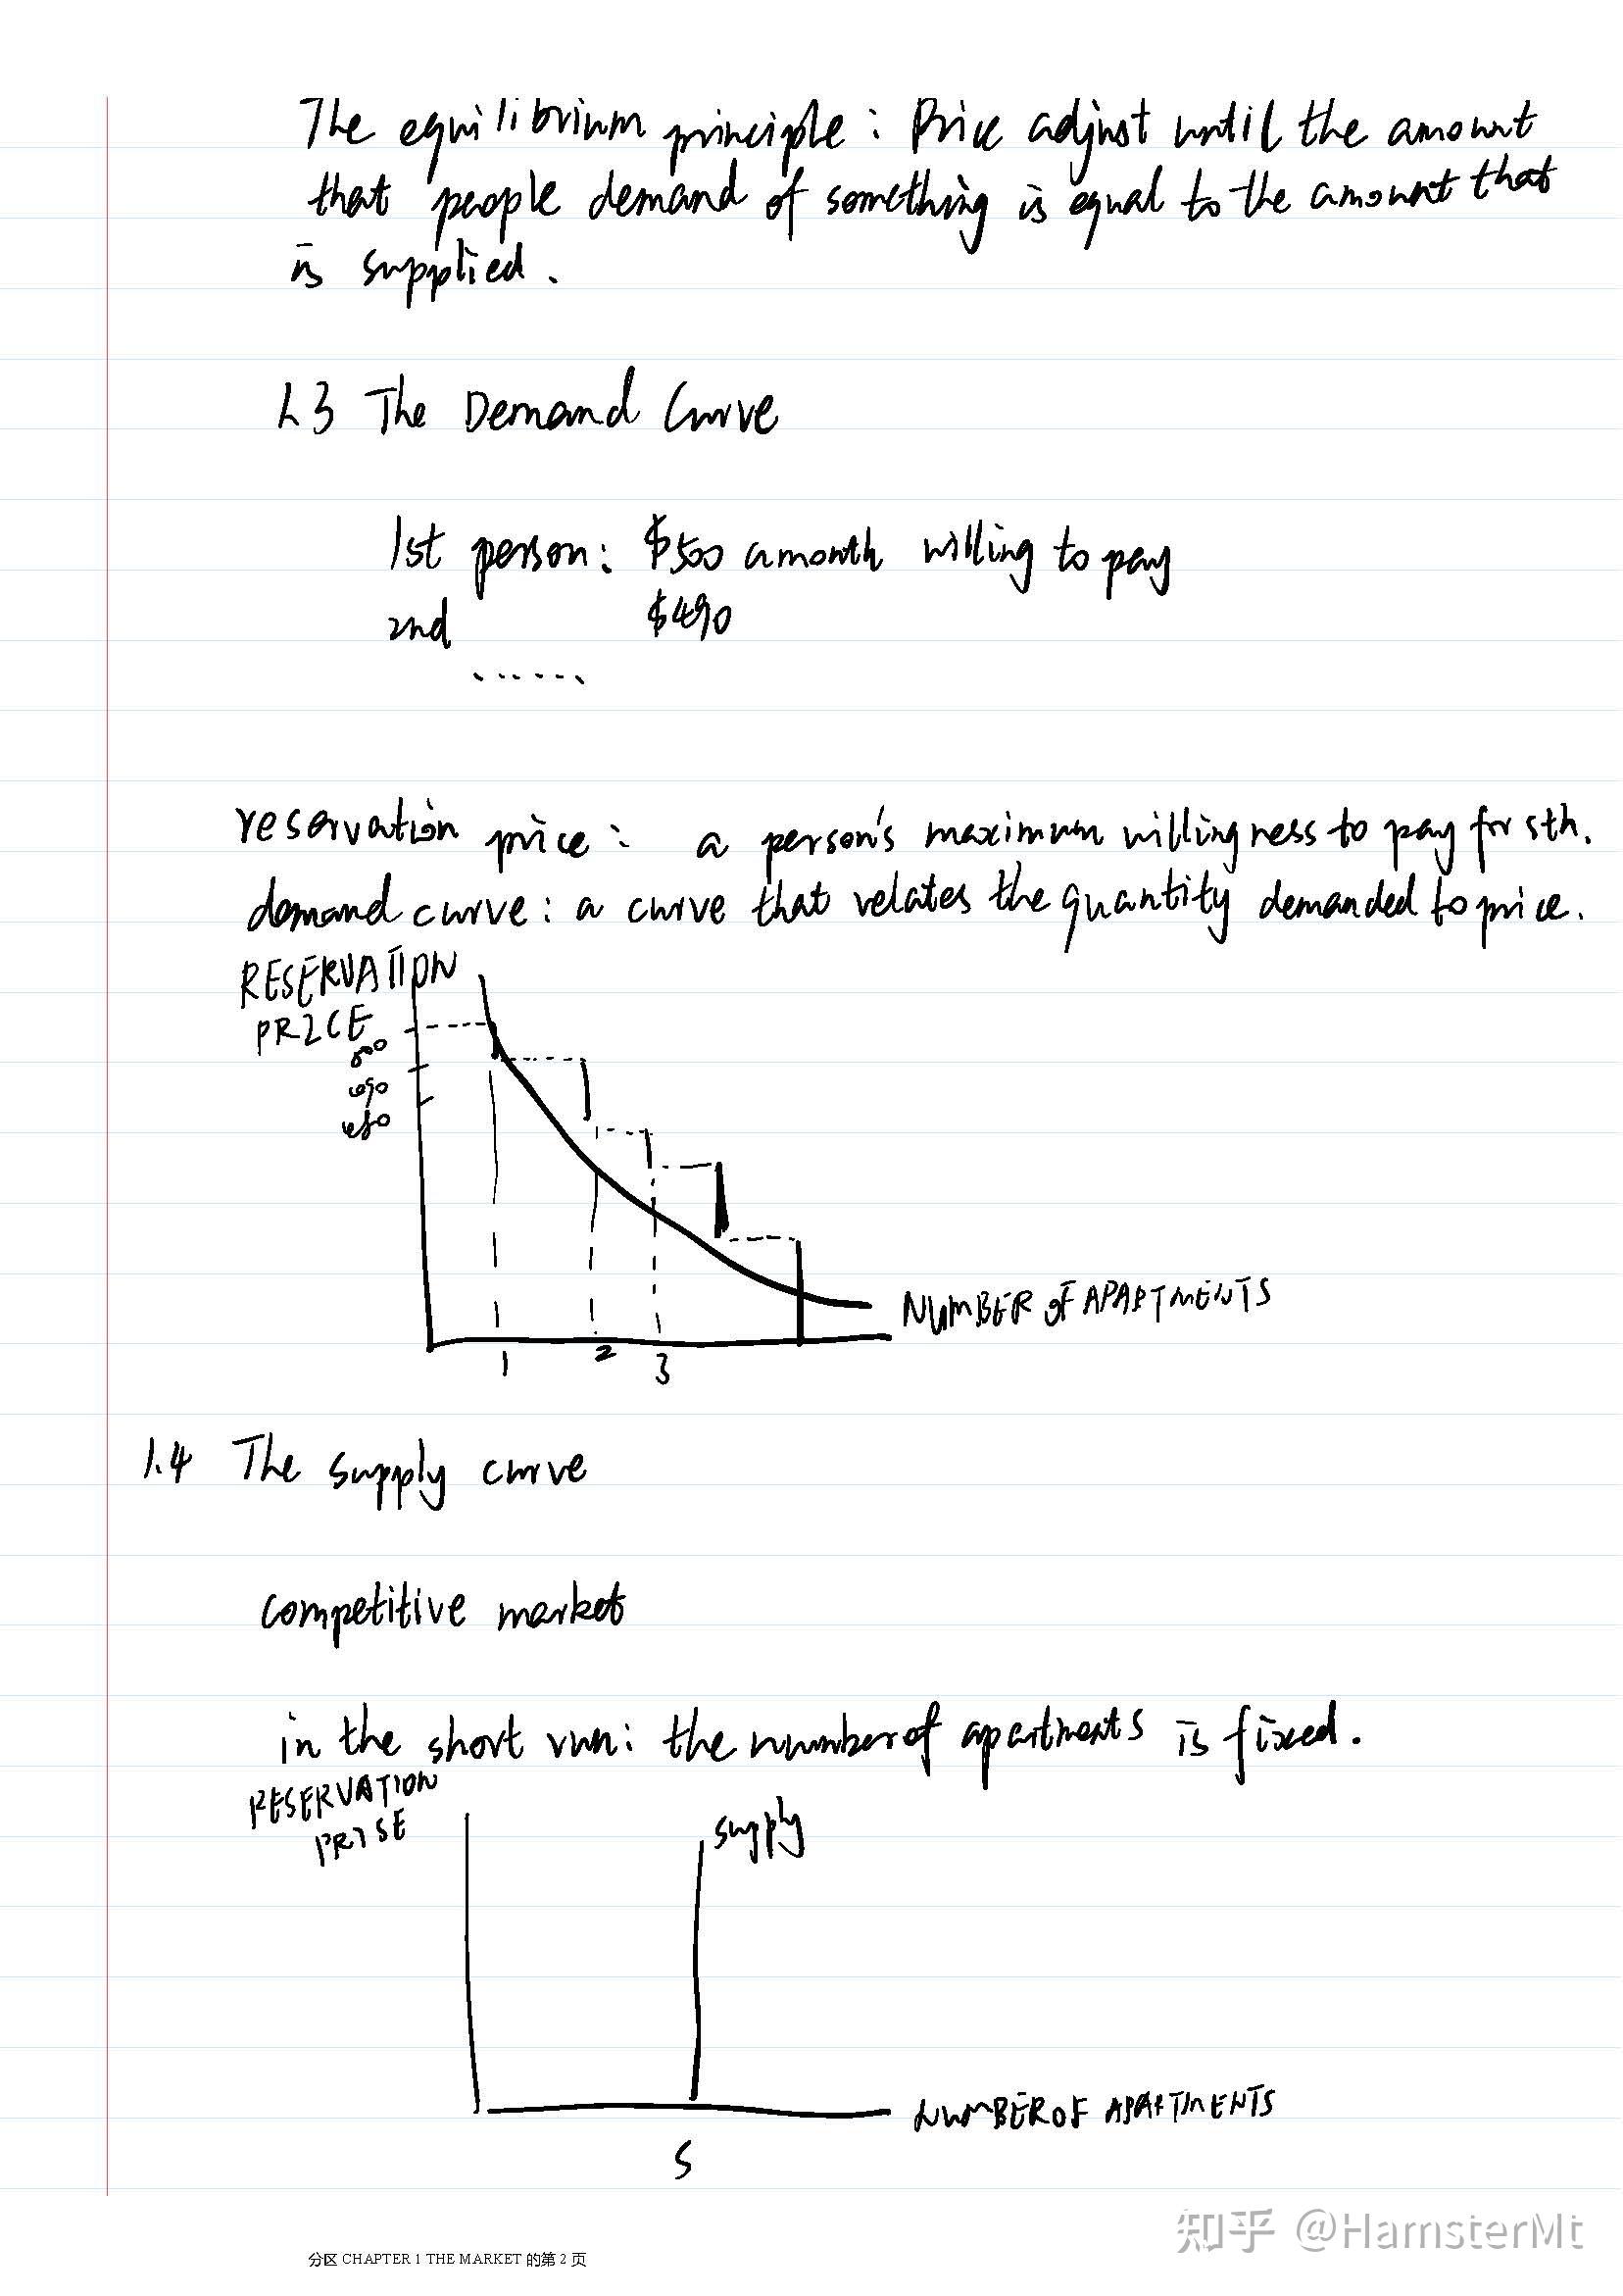 The equilibrium principle: Price adjust until the amount
that people demand of something is equal to the amount that
is supplied.
1.3 The Demand Curve
1st person: $500 a month willing to pay
2nd $490
......
reservation price: a person's maximum willingness to pay for sth.
demand curve: a curve that relates the quantity demanded to price.
RESERVATION
PRICE
500
490
480
NUMBER OF APARTMENTS
1 2 3
1.4 The supply curve
competitive market
in the short run: the number of apartments is fixed.
RESERVATION
PRISE
supply
NUMBER OF APARTMENTS
S
知乎 @HamsterMt
分区 CHAPTER 1 THE MARKET 的第 2 页